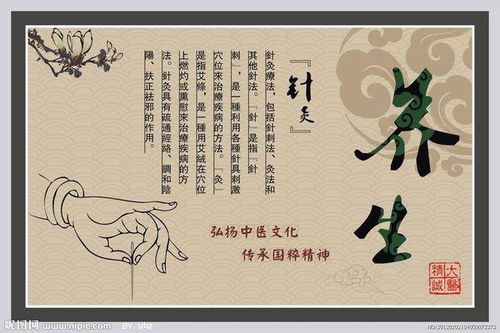 养生
『針灸』
針灸療法,包括針刺法、灸法和
其他針法。『針』是指『針
刺』,是一種利用各種針具刺激
穴位來治療疾病的方法。『灸』
是指艾條,是一種用艾絨在穴位
上燃灼或熏慰來治療疾病的方
法。針灸具有疏通經絡、調和陰
陽、扶正祛邪的作用。
弘扬中医文化
传承国粹精神
大醫
精誠
昵图网 www.nipic.com
BY: ulg